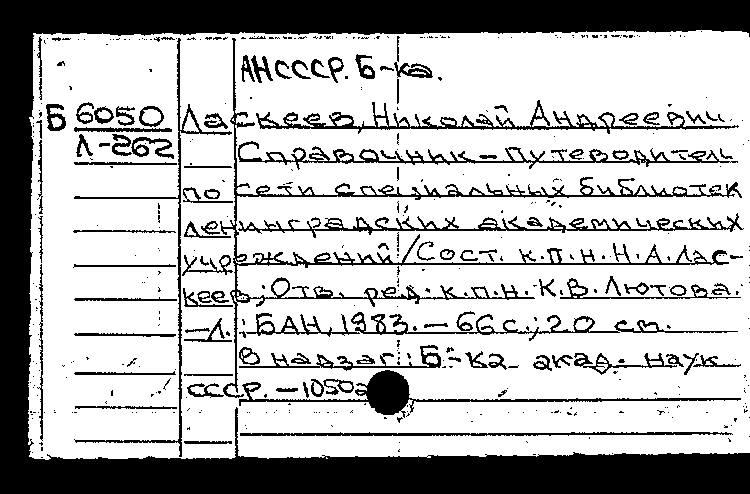 АН СССР. Б-ка.
Б 6050 Ласкеев, Николай Андреевич
Л-262 Справочник-путеводитель
по сети специальных библиотек
ленинградских академических
учреждений/Сост. к.п.н. Н.А.Лас-
кеев; Отв. ред. к.п.н. К.В. Лютова.
—Л.: БАН, 1983. — 66 с.; 20 см.
В надзаг.: Б-ка акад. наук
СССР. — 1050